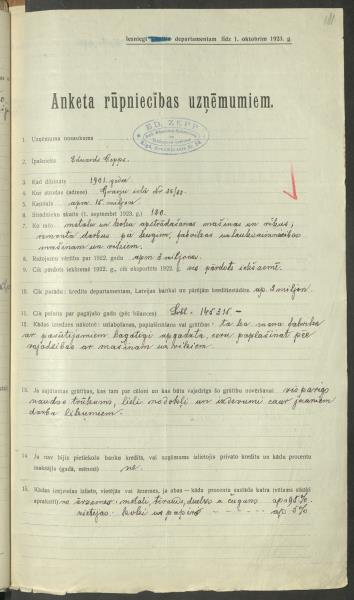 111
Iesniegt departamentam līdz 1. oktobrim 1923. g.
Anketa rūpniecības uzņēmumiem.
ED. ZEPP
1. Uzņēmuma nosaukums
2. Īpašnieks Eduards Cepps.
3. Kad dibināts 1901. gadā
4. Kur atrodas (adrese) Grāvju ielā № 36/38.
5. Kapitals apm. 15 miljoni
6. Strādnieku skaits (1. septembrī 1923. g.) 130.
7. Ko ražo metalu un koku apstrādāšanas mašinas un rīkus;
remonta darbus pa kuģiem, fabrikas un lauksaimniecības
mašinam un rīkiem.
8. Ražojumu vērtība par 1922. gadu apm 3 miljonas.
9. Cik pārdots iekšzemē 1922. g., cik eksportēts 1922. g. viss pārdots iekšzemē.
10. Cik parādu: kredita departamentam, Latvijas bankai un pārējām kreditiestādēm ap. 2 miljon.
11. Cik peļņas par pagājušo gadu (pēc bilances) Ls bl. - 145315 -
12. Kādas izredzes nākotnē: uzlabošanas, paplašināšanas vai grūtības: tā kā mana fabrika
ar pasūtijumiem bagātīgi apgādāta, ceru paplašināt pēc
vajadzības ar mašinām un rīkiem.
13. Ja sajūtamas grūtības, kas tam par cēloni un kas būtu vajadzīgs šo grūtību novēršanai:
naudas trūkums, lieli nodokļi un izdevumi caur jauniem
darba likumiem.
14. Ja nav bijis pietiekoša banku kredita, vai uzņēmums izlietojis privāto kreditu un kādu procentu
maksājis (gadā, mēnesī) nē.
15. Kādas izejvielas izlieto, vietējās vai ārzemes, ja abas — kādu procentu sastāda katra (vēlams sīkāki
aprakstīt) no ārzemēm: metalu, tēraudu, dzelzs un čuguns ap. 95%.
vietējas - koki un papīrs - - - - - ap. 5%